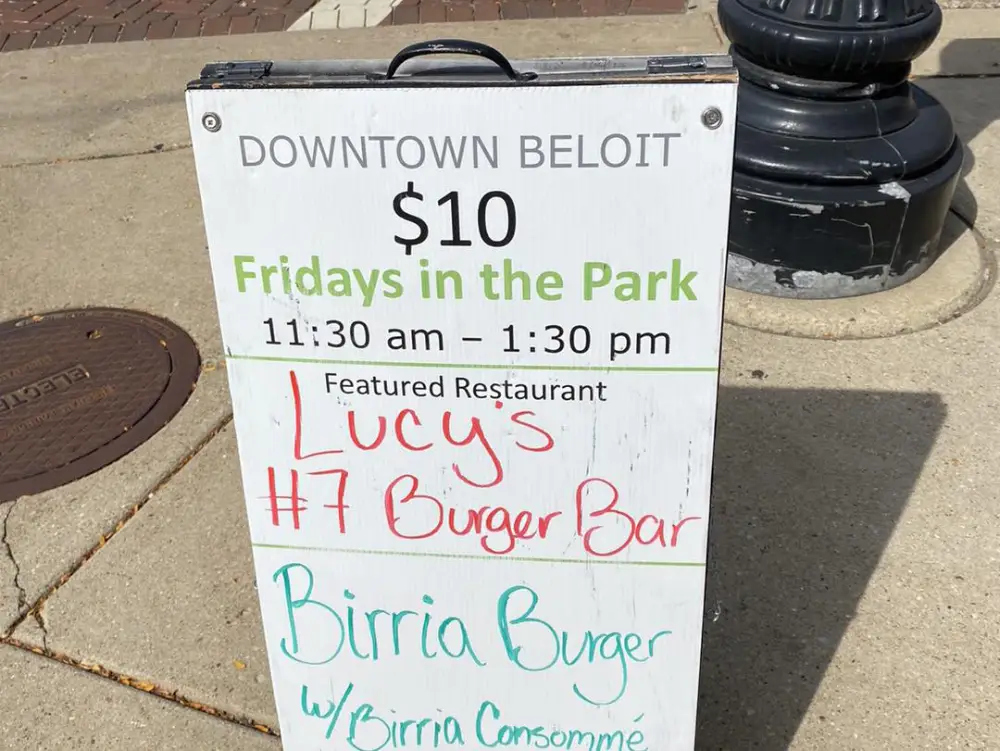 DOWNTOWN BELOIT
$10
Fridays in the Park
11:30 am – 1:30 pm
Featured Restaurant
Lucy's
#7 Burger Bar
Birria Burger
w/Birria Consommé
ELECTR